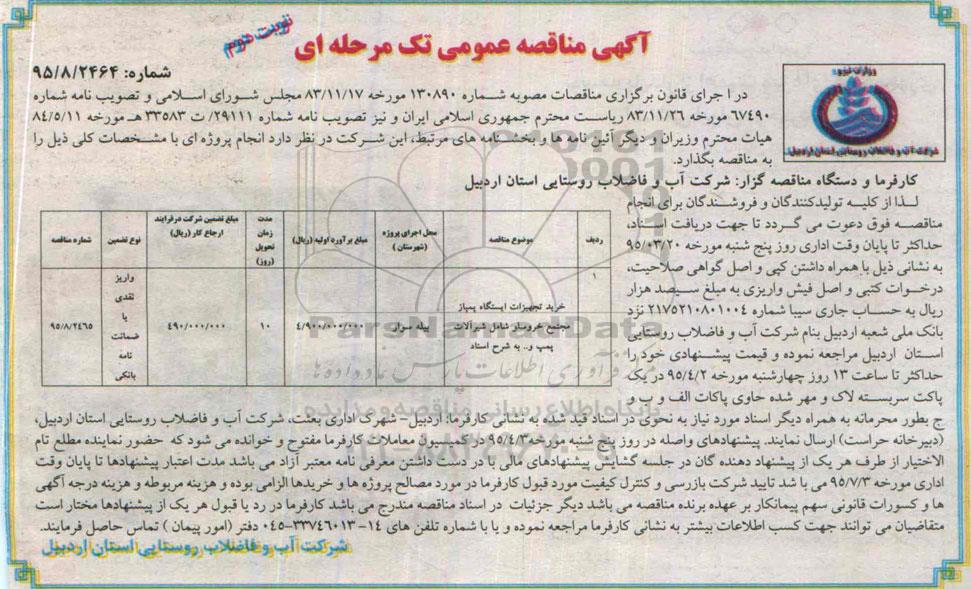 نوبت دوم
آگهی مناقصه عمومی تک مرحله ای
شماره: ۹۵/۸/۲۴۶۴
وزارت نیرو
شرکت آب و فاضلاب روستایی استان اردبیل
در اجرای قانون برگزاری مناقصات مصوبه شماره ۱۳۰۸۹۰ مورخه ۸۳/۱۱/۱۷ مجلس شورای اسلامی و تصویب نامه شماره
۶۷۴۹۰ مورخه ۸۳/۱۱/۲۶ ریاست محترم جمهوری اسلامی ایران و نیز تصویب نامه شماره ۲۹۱۱۱/ ت ۳۳۵۸۳ هـ مورخه ۸۴/۵/۱۱
هیات محترم وزیران و دیگر آئین نامه ها و بخشنامه های مرتبط، این شرکت در نظر دارد انجام پروژه ای با مشخصات کلی ذیل را
به مناقصه بگذارد.
کارفرما و دستگاه مناقصه گزار: شرکت آب و فاضلاب روستایی استان اردبیل
لذا از کلیه تولیدکنندگان و فروشندگان برای انجام
مناقصه فوق دعوت می گردد تا جهت دریافت اسناد،
حداکثر تا پایان وقت اداری روز پنج شنبه مورخه ۹۵/۰۳/۲۰
به نشانی ذیل با همراه داشتن کپی و اصل گواهی صلاحیت،
درخواست کتبی و اصل فیش واریزی به مبلغ سیصد هزار
ریال به حساب جاری سیبا شماره ۲۱۷۵۲۱۰۸۰۱۰۰۴ نزد
بانک ملی شعبه اردبیل بنام شرکت آب و فاضلاب روستایی
استان اردبیل مراجعه نموده و قیمت پیشنهادی خود را
حداکثر تا ساعت ۱۳ روز چهارشنبه مورخه ۹۵/۴/۲ در یک
پاکت سربسته لاک و مهر شده حاوی پاکات الف و ب و
ردیف	موضوع مناقصه	محل اجرای پروژه (شهرستان)	مبلغ برآورد اولیه (ریال)	مدت زمان تحویل (روز)	مبلغ تضمین شرکت در فرایند ارجاع کار (ریال)	نوع تضمین	شماره مناقصه
۱	خرید تجهیزات ایستگاه پمپاژ مجتمع خروسلو شامل شیرآلات پمپ و.. به شرح اسناد	بیله سوار	۴/۹۰۰/۰۰۰/۰۰۰	۱۰	۴۹۰/۰۰۰/۰۰۰	واریز نقدی یا ضمانت نامه بانکی	۹۵/۸/۲۴۶۵
ج بطور محرمانه به همراه دیگر اسناد مورد نیاز به نحوی در اسناد قید شده به نشانی کارفرما: اردبیل- شهرک اداری بعثت، شرکت آب و فاضلاب روستایی استان اردبیل،
(دبیرخانه حراست) ارسال نمایند. پیشنهادهای واصله در روز پنج شنبه مورخه ۹۵/۴/۳ در کمیسیون معاملات کارفرما مفتوح و خوانده می شود که حضور نماینده مطلع تام
الاختیار از طرف هر یک از پیشنهاد دهنده گان در جلسه گشایش پیشنهادهای مالی با در دست داشتن معرفی نامه معتبر آزاد می باشد مدت اعتبار پیشنهادها تا پایان وقت
اداری مورخه ۹۵/۷/۳ می با شد تایید شرکت بازرسی و کنترل کیفیت مورد قبول کارفرما در مورد مصالح پروژه ها و خریدها الزامی بوده و هزینه مربوطه و هزینه درجه آگهی
ها و کسورات قانونی سهم پیمانکار بر عهده برنده مناقصه می باشد دیگر جزئیات در اسناد مناقصه مندرج می باشد کارفرما در رد یا قبول هر یک از پیشنهادها مختار است
متقاضیان می توانند جهت کسب اطلاعات بیشتر به نشانی کارفرما مراجعه نموده و یا با شماره تلفن های ۱۴-۳۳۷۴۶۰۱۳-۰۴۵ دفتر (امور پیمان) تماس حاصل فرمایند.
شرکت آب و فاضلاب روستایی استان اردبیل
ParsNamadData
پایگاه اطلاع رسانی مناقصه و مزایده